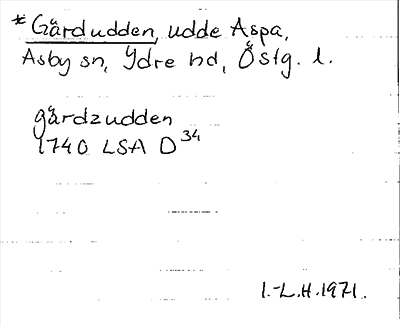 * Gärdudden, udde Aspa,
Asby sn, Ydre hd, Östg. l.
gärdzudden
1740 LSA D 34
I.-L.H. 1971.